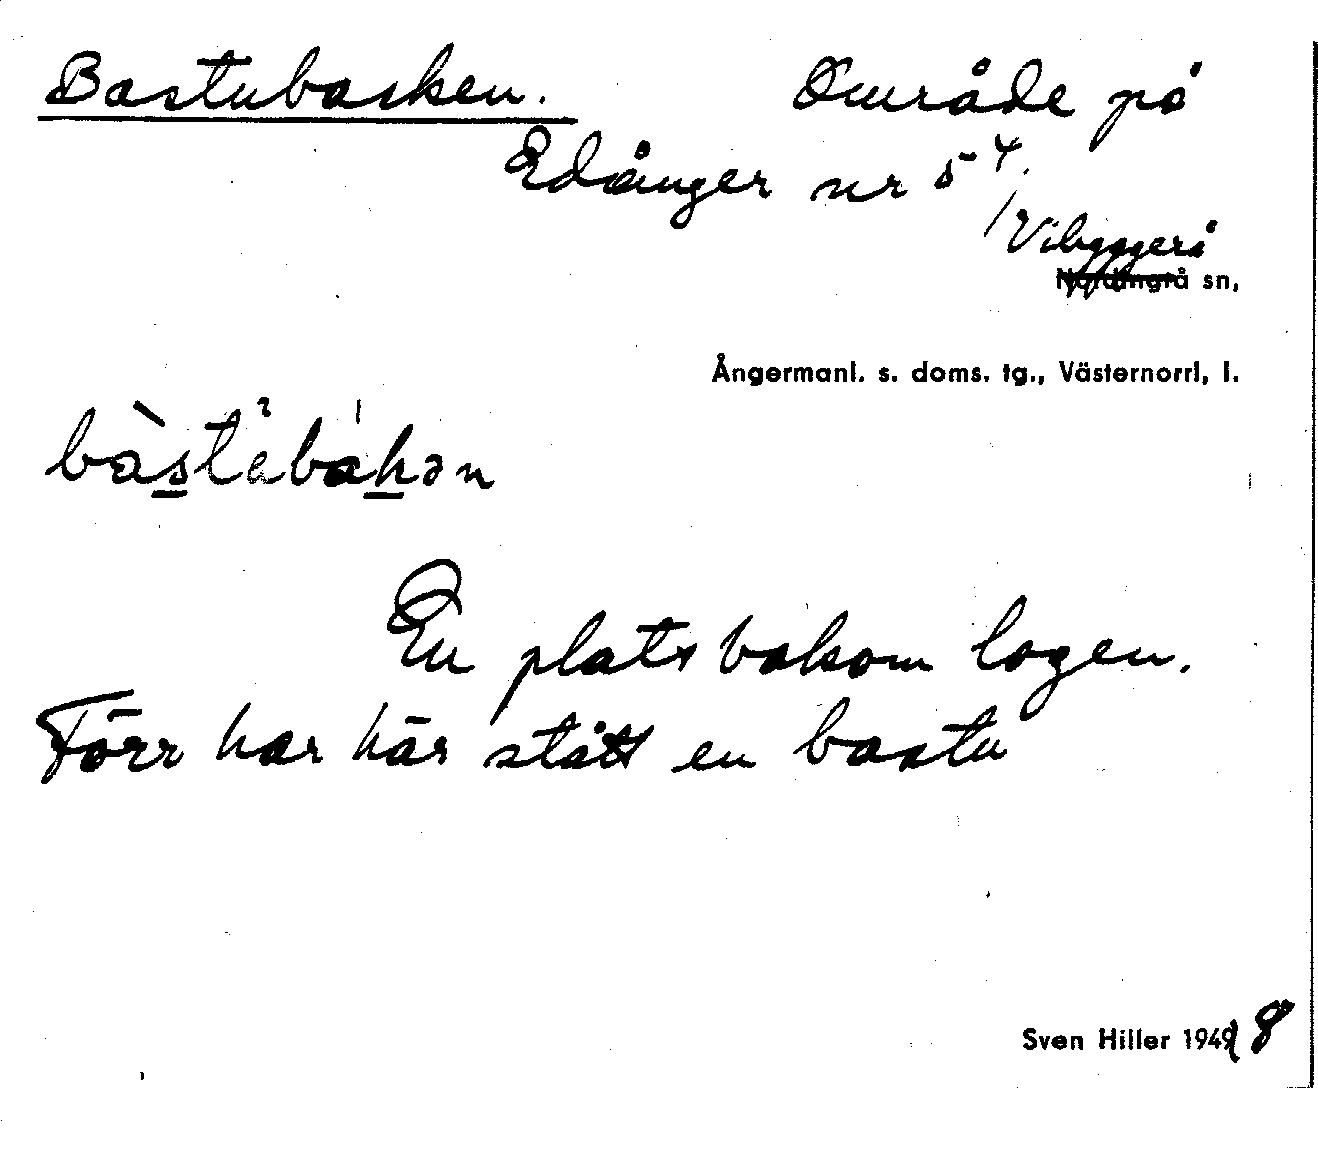 Bastubasken. Område på
Edånger nr 5⁴.
/Vibyggerå
Nordingrå sn,
Ångermanl. s. doms. tg., Västernorrl, l.
En plats bakom logen.
Förr har här stått en bastu
Sven Hiller 1949 8